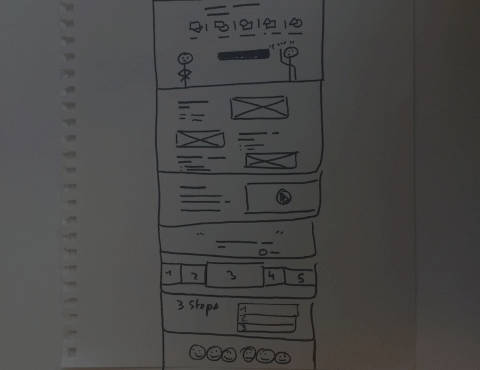 1 2 3 4 5
3 Steps
1
2
3